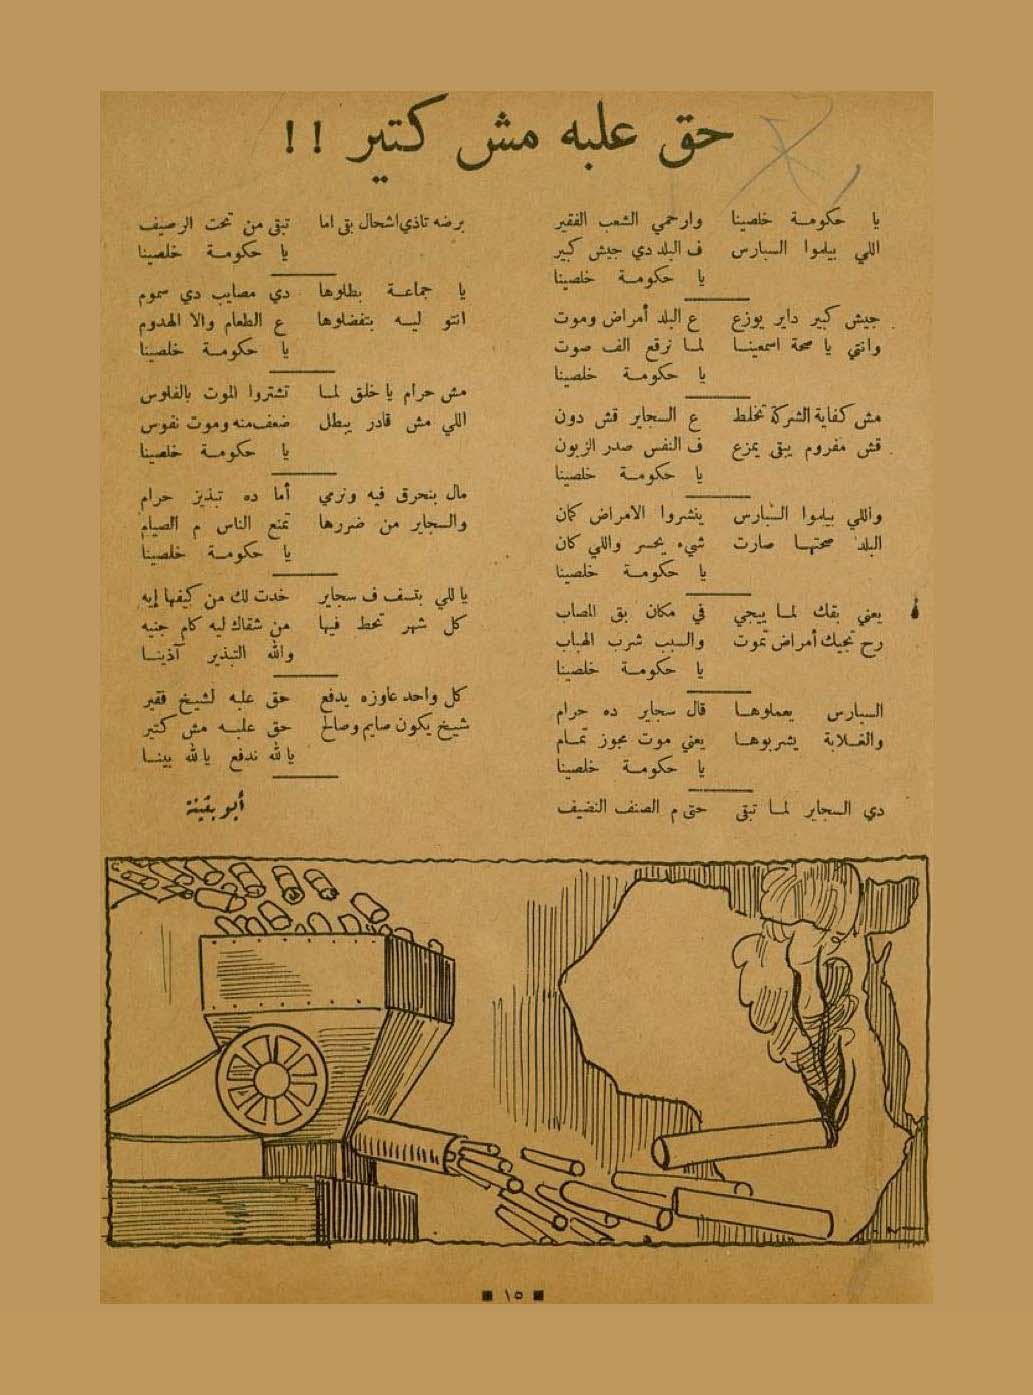 حق علبه مش كتير !!
يا حكومة خلصينا وارحمي الشعب الفقير
اللي بيلموا السبارس ف البلد دي جيش كبير
يا حكومة خلصينا
جيش كبير داير يوزع ع البلد أمراض وموت
وانتي يا صحة اسمعينا لما نرقع الف صوت
يا حكومة خلصينا
مش كفاية الشركة تخلط ع السجاير قش دون
قش مفروم يبقى يمزع ف النفس صدر الزبون
يا حكومة خلصينا
واللي بيلموا السبارس ينشروا الامراض كمان
البلد صحتها صارت شيء يحسر واللي كان
يا حكومة خلصينا
يعني بقك لما ييجي في مكان بق المصاب
رح تجيك أمراض تموت والسبب شرب الهباب
يا حكومة خلصينا
السبارس يعملوها قال سجاير ده حرام
والغلابة يشربوها يعني موت مجوز تمام
يا حكومة خلصينا
دي السجاير لما تبقى حتى م الصنف النضيف
برضه تاذي اشحال بقى اما تبقى من تحت الرصيف
يا حكومة خلصينا
يا جماعة بطلوها دي مصايب دي سموم
انتو ليه بتفضلوها ع الطعام والا الهدوم
يا حكومة خلصينا
مش حرام يا خلق لما تشتروا الموت بالفلوس
اللي مش قادر يبطل ضعف منه وموت نفوس
يا حكومة خلصينا
مال بنحرق فيه ونرمي أما ده تبذير حرام
والسجاير من ضررها تمنع الناس م الصيام
يا حكومة خلصينا
يا للي بتسف ف سجاير خدت لك من كيفها إيه
كل شهر تحط فيها من شقاك ليه كام جنيه
والله التبذير آذينا
كل واحد عاوزه يدفع حق علبه لشيخ فقير
شيخ يكون صايم وصالح حق علبه مش كتير
يا لله ندفع يا لله بينا
أبو بثينة
١٥